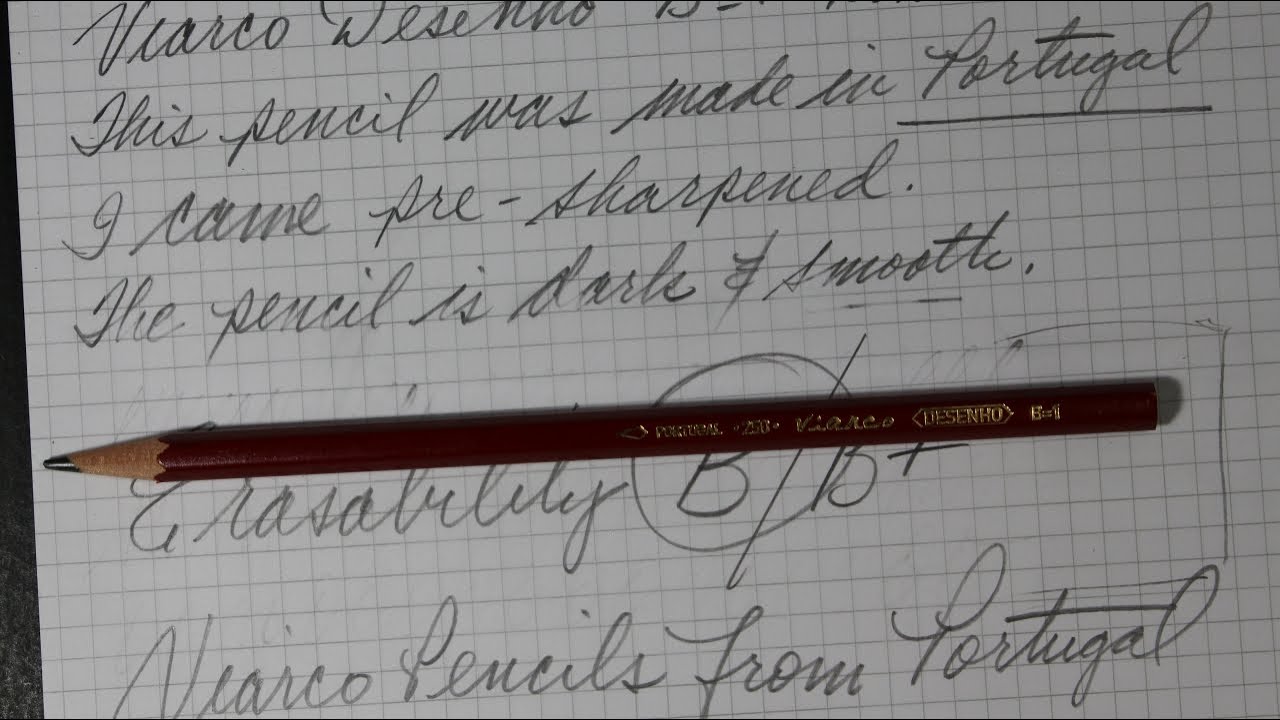 Viarco Desenho B=1
This pencil was made in Portugal
I came pre-sharpened.
The pencil is dark & smooth.
PORTUGAL ·250· Viarco DESENHO B=1
Erasability B/B+
Viarco Pencils from Portugal